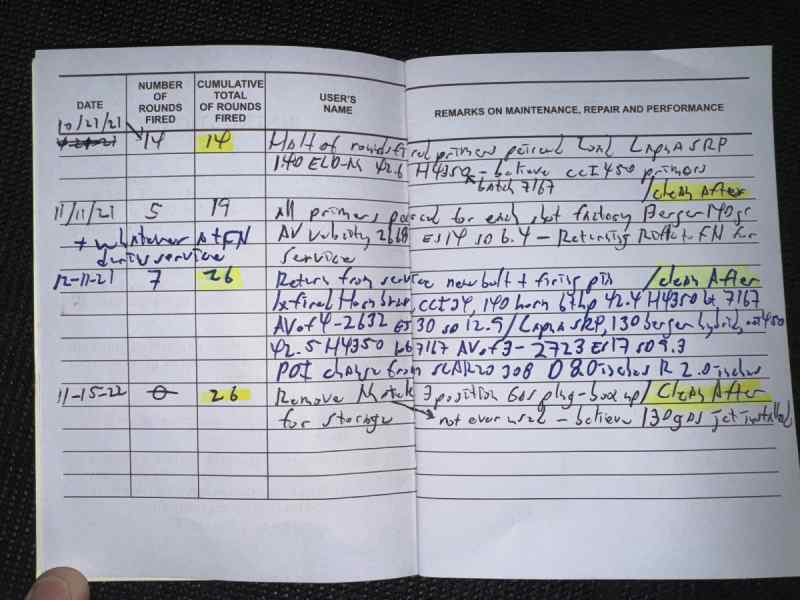 DATE NUMBER OF ROUNDS FIRED CUMULATIVE TOTAL OF ROUNDS FIRED USER'S NAME REMARKS ON MAINTENANCE, REPAIR AND PERFORMANCE
10/21/21 14 14 Half of rounds fired primers peirced Load Lapua SRP
140 ELD-M 42.6 H4350 - believe CCI 450 primers
batch 7167 /clean After
11/11/21 5 19 All primers peirced for each shot factory Berger 140gr
+ whatever at FN AV velocity 2668 ES 14 SD 6.4 - Returning Rifle to FN for
during service service
12-11-21 7 26 Return from service new bolt + firing pin /clean After
1x fired Horn brass, CCI 34, 140 horn bthp 42.4 H4350 lot 7167
AV of 4 - 2632 ES 30 SD 12.9 / Lapua SRP, 130 berger hybrid, 450
42.5 H4350 lot 7167 AV of 3 - 2723 ES 17 SD 9.3
POI change from SCAR 20 308 D 8.0 inches R 2.0 inches
11-15-22 0 26 Remove 3 position Gas plug - box up / Clean After
for storage not ever used - believe 130 gas jet installed